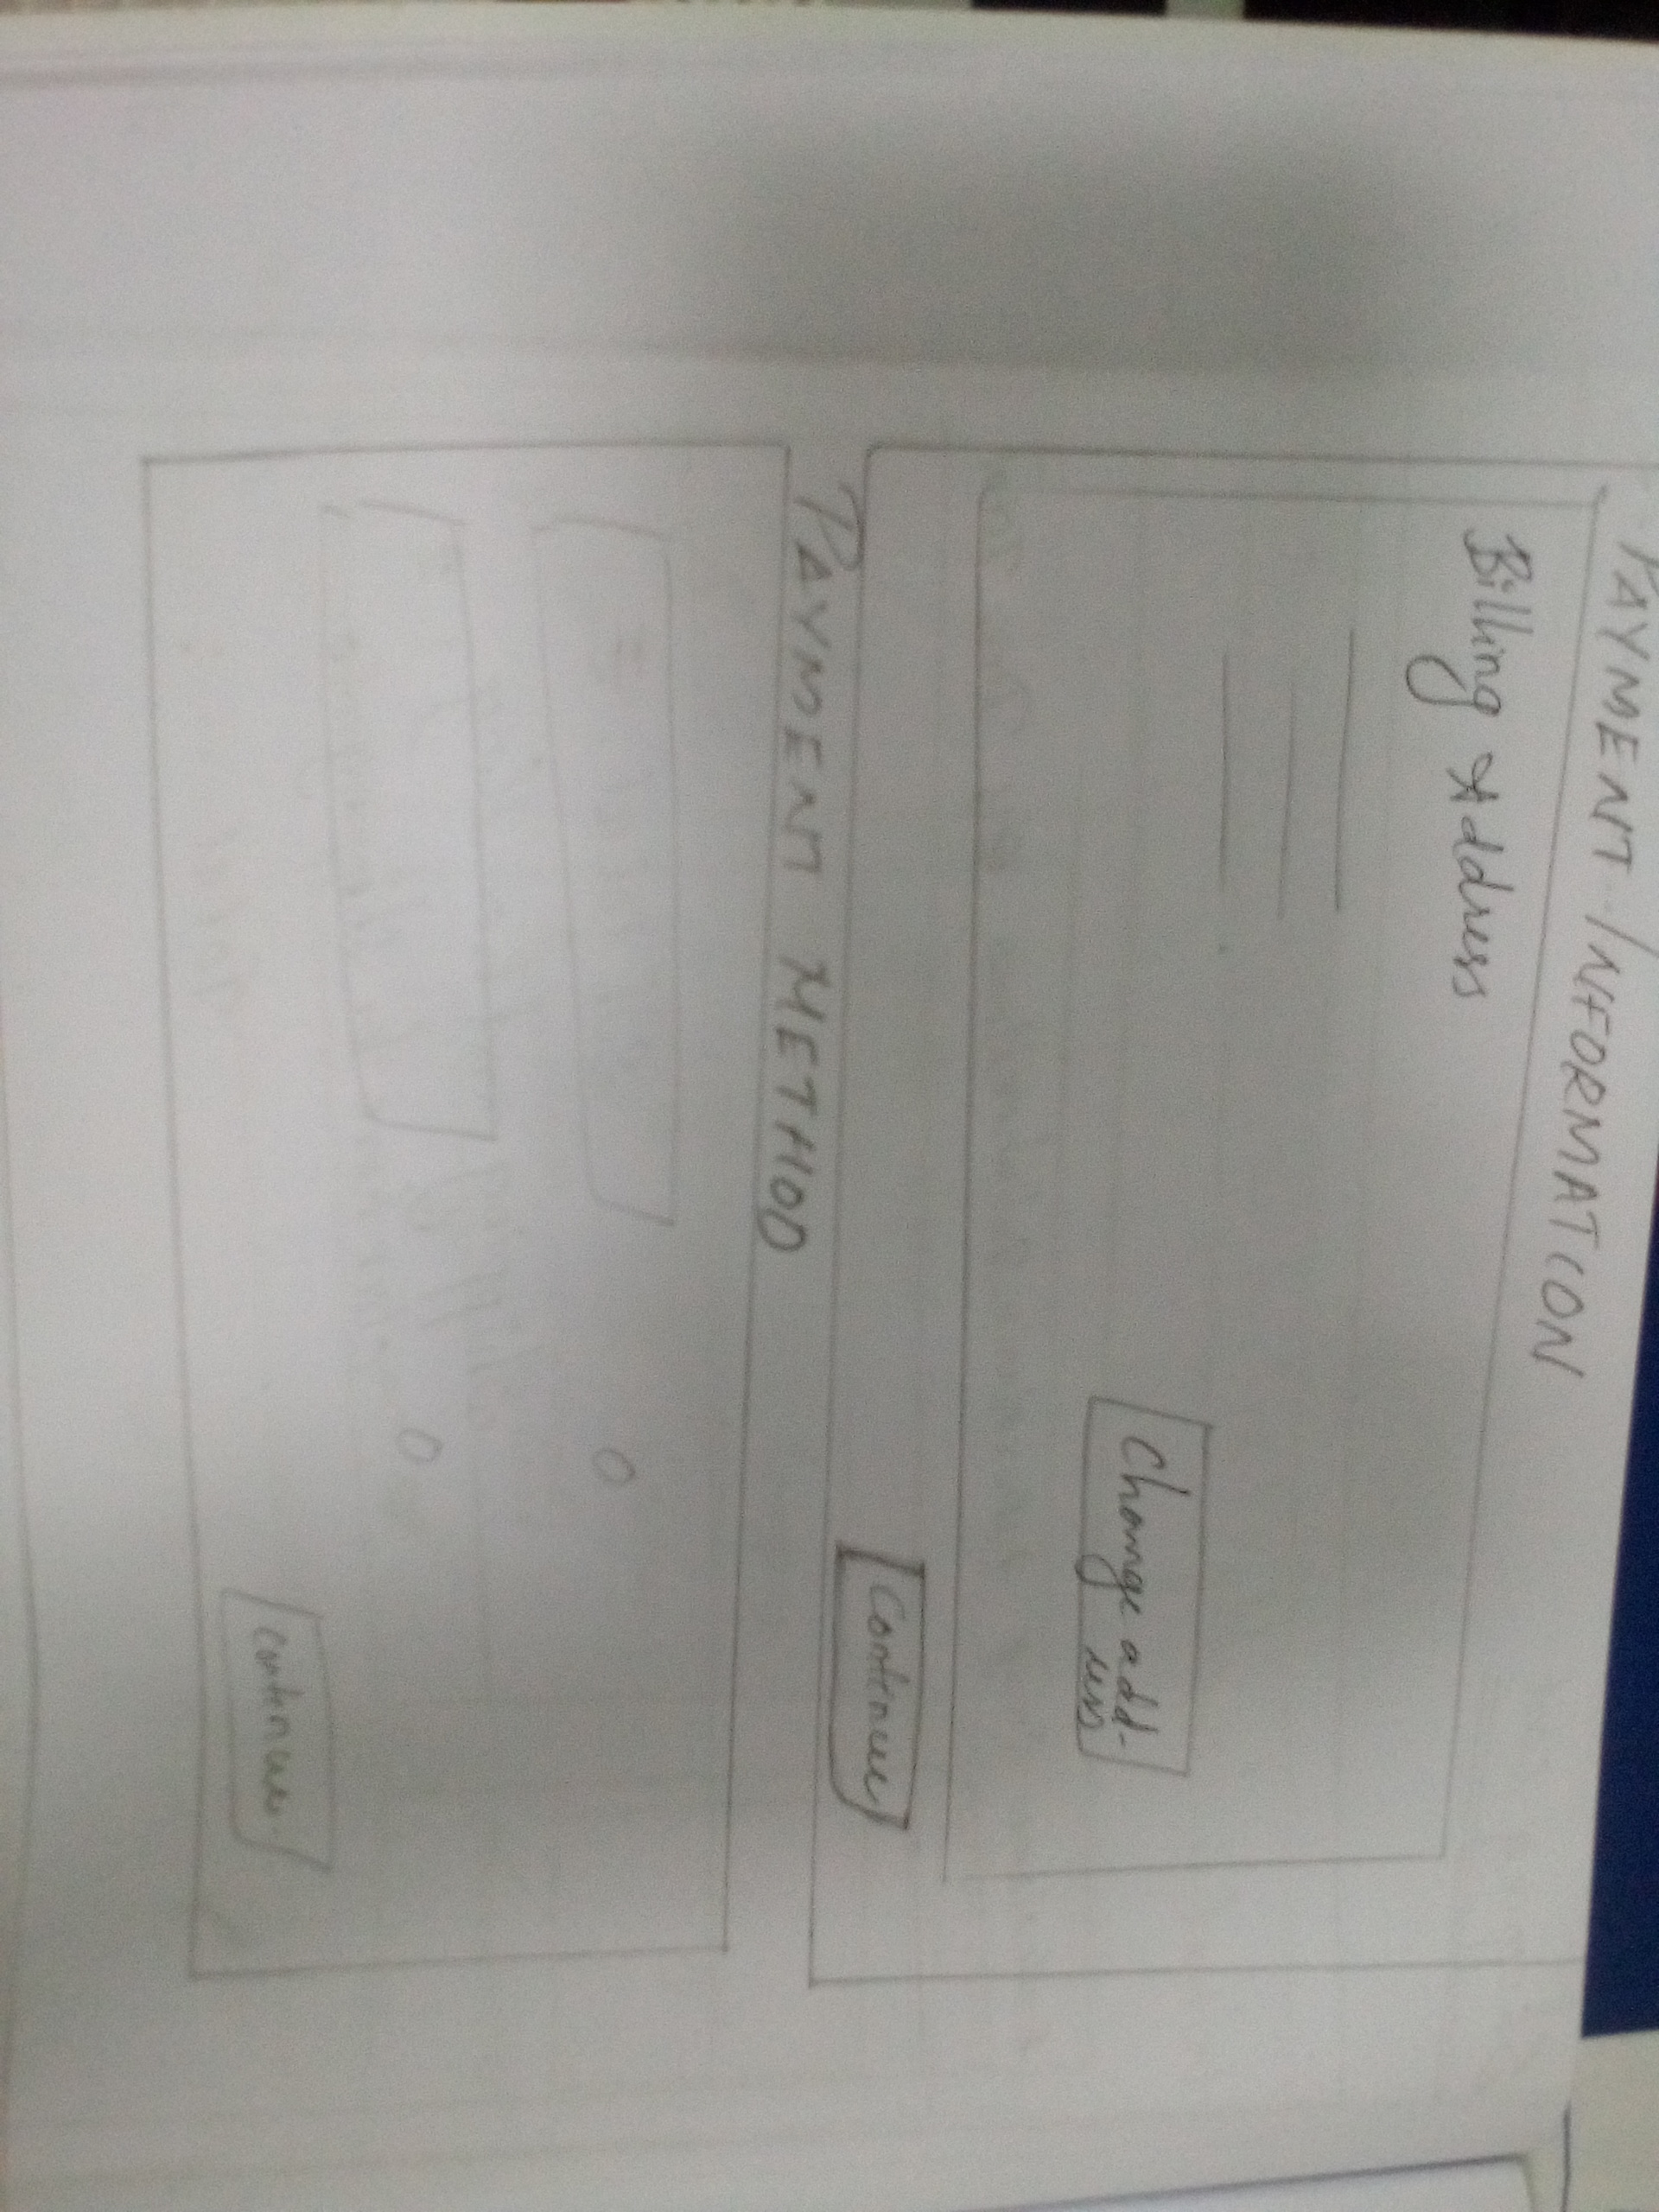 PAYMENT INFORMATION
Billing Address
Change add-
ress
Continue
PAYMENT METHOD
Continue